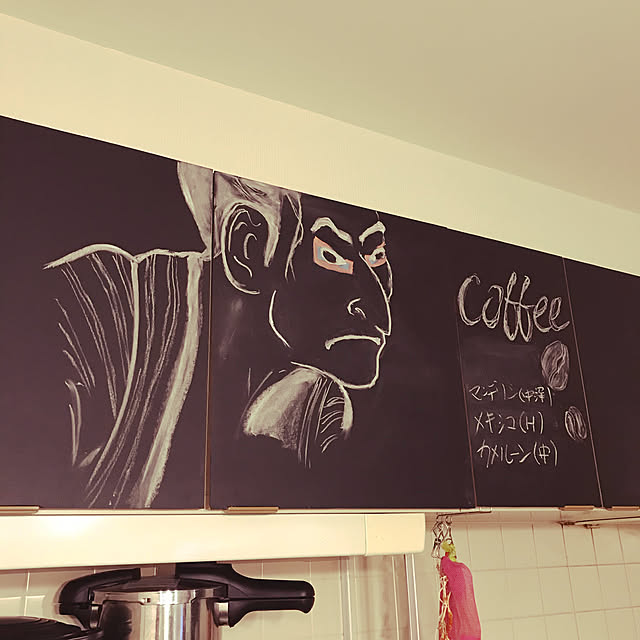 Coffee
マンデリン(中深)
メキシコ(H)
カメルーン(中)